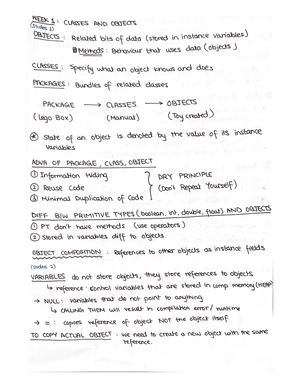 WEEK 1: CLASSES AND OBJECTS
(Slides 1)
OBJECTS: Related bits of data (stored in instance variables)
Methods: Behaviour that uses data (objects)
CLASSES: Specify what an object knows and does
PACKAGES: Bundles of related classes
PACKAGE → CLASSES → OBJECTS
(Lego Box) (Manual) (Toy created)
State of an object is denoted by the value of its instance
variables
ADVA OF PACKAGE, CLASS, OBJECT
① Information Hiding
② Reuse Code
③ Minimal Duplication of Code
DRY PRINCIPLE
(Don't Repeat Yourself)
DIFF B/W PRIMITIVE TYPES (boolean, int, double, float) AND OBJECTS
① PT don't have methods (use operators)
② Stored in variables diff to objects
OBJECT COMPOSITION: References to other objects as instance fields
(Slides 2)
VARIABLES do not store objects, they store references to objects
↳ reference: control variables that are stored in comp memory (HEAP)
→ NULL: variables that do not point to anything
↳ CALLING THEM will result in compilation error / runtime
→ =: copies reference of object NOT the object itself
TO COPY ACTUAL OBJECT: we need to create a new object with the same
reference.